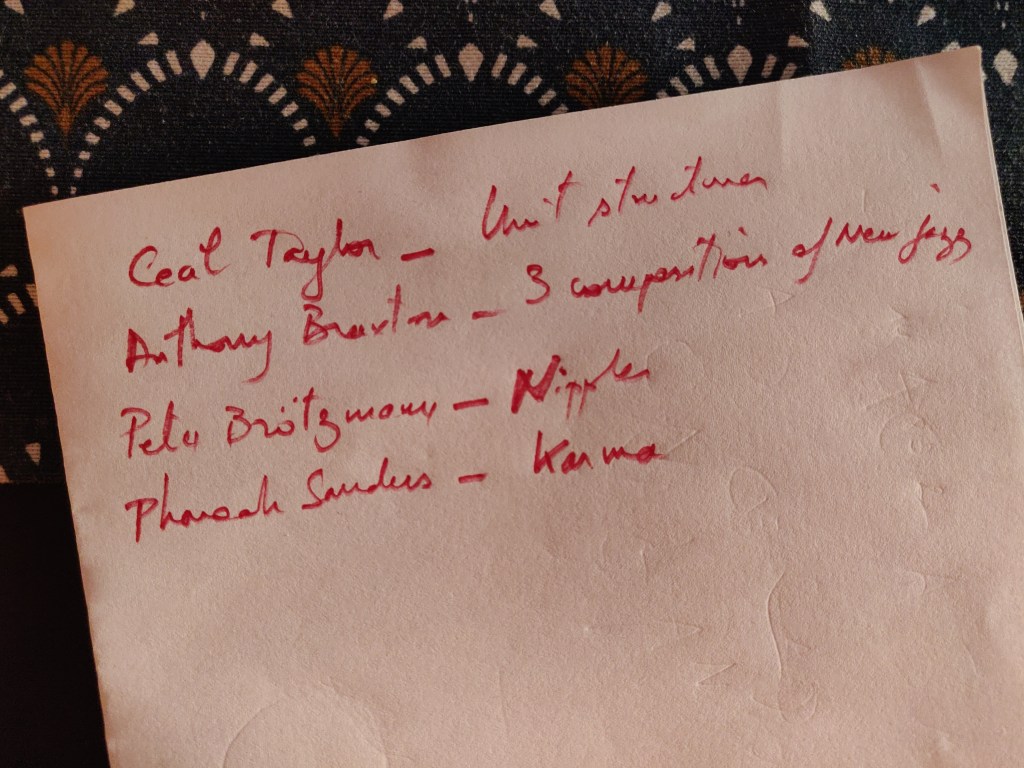 Cecil Taylor - Unit structures
Anthony Braxton - 3 compositions of New jazz
Peter Brötzmann - Nipples
Pharoah Sanders - Karma